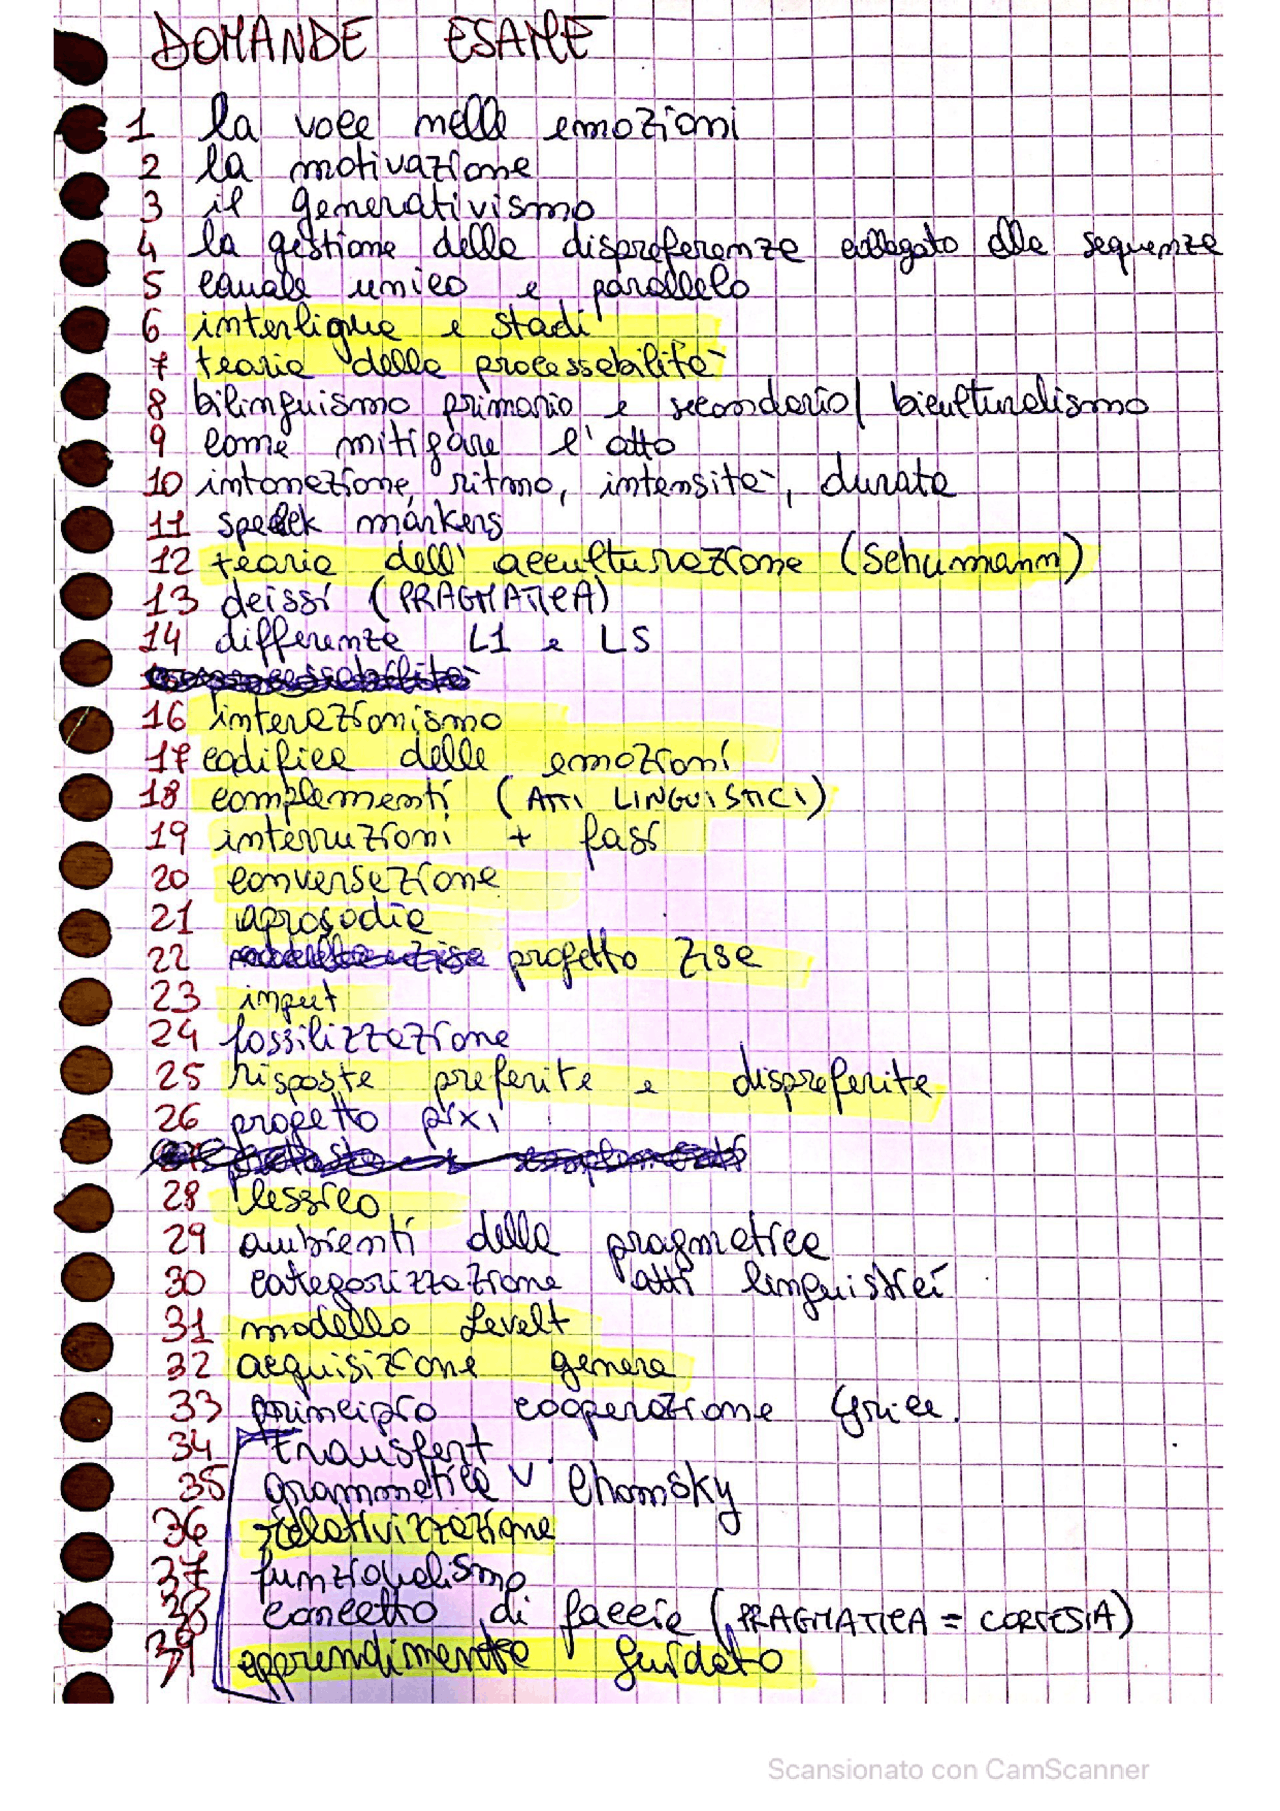 DOMANDE ESAME
1 la voce nelle emozioni
2 la motivazione
3 il generativismo
4 la gestione delle dispreferenze collegato alle sequenze
5 canale unico e parallelo
6 interligue e stadi
7 teoria della processabilità
8 bilinguismo primario e secondario/ biculturalismo
9 come mitigare l'atto
10 intonazione, ritmo, intensità, durata
11 markers
12 teoria dell'acculturazione (Schumann)
13 deissi (PRAGMATICA)
14 differenze L1 e LS
16 interazionismo
17 codifica delle emozioni
18 complementi (ATTI LINGUISTICI)
19 interruzioni + fasi
20 conversazione
21 aprosodia
22 progetto Zise
23 input
24 fossilizzazione
25 risposte preferite e dispreferite
26 progetto pixi
28 lessico
29 ambienti della pragmatica
30 categorizzazione atti linguistici
31 modello Levelt
32 acquisizione genere
33 principio cooperazione Grice.
34 transfert
35 grammatica Chomsky
36 relativizzazione
37 funzionalismo
38 concetto di faccia (PRAGMATICA = CORTESIA)
39 apprendimento guidato
Scansionato con CamScanner